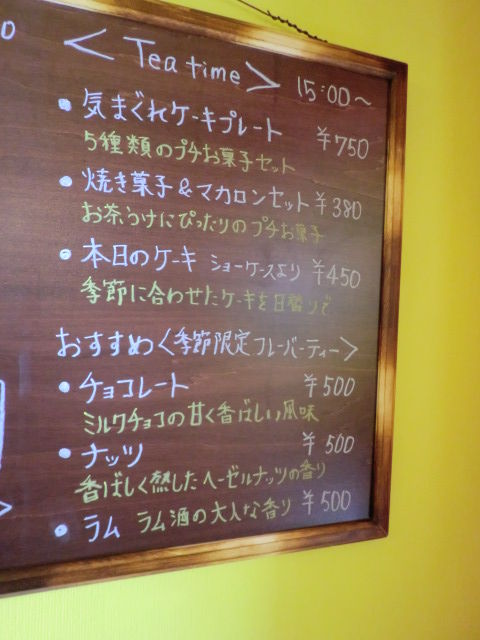 0
< Tea time > 15:00~
• 気まぐれケーキプレート ¥750
5種類のプチお菓子セット
• 焼き菓子&マカロンセット ¥380
お茶うけにぴったりのプチお菓子
• 本日のケーキ ショーケースより ¥450
季節に合わせたケーキを日替りで
おすすめ<季節限定フレーバーティー>
• チョコレート ¥500
ミルクチョコの甘く香ばしい風味
• ナッツ ¥500
香ばしく熱したヘーゼルナッツの香り
• ラム ラム酒の大人な香り ¥500